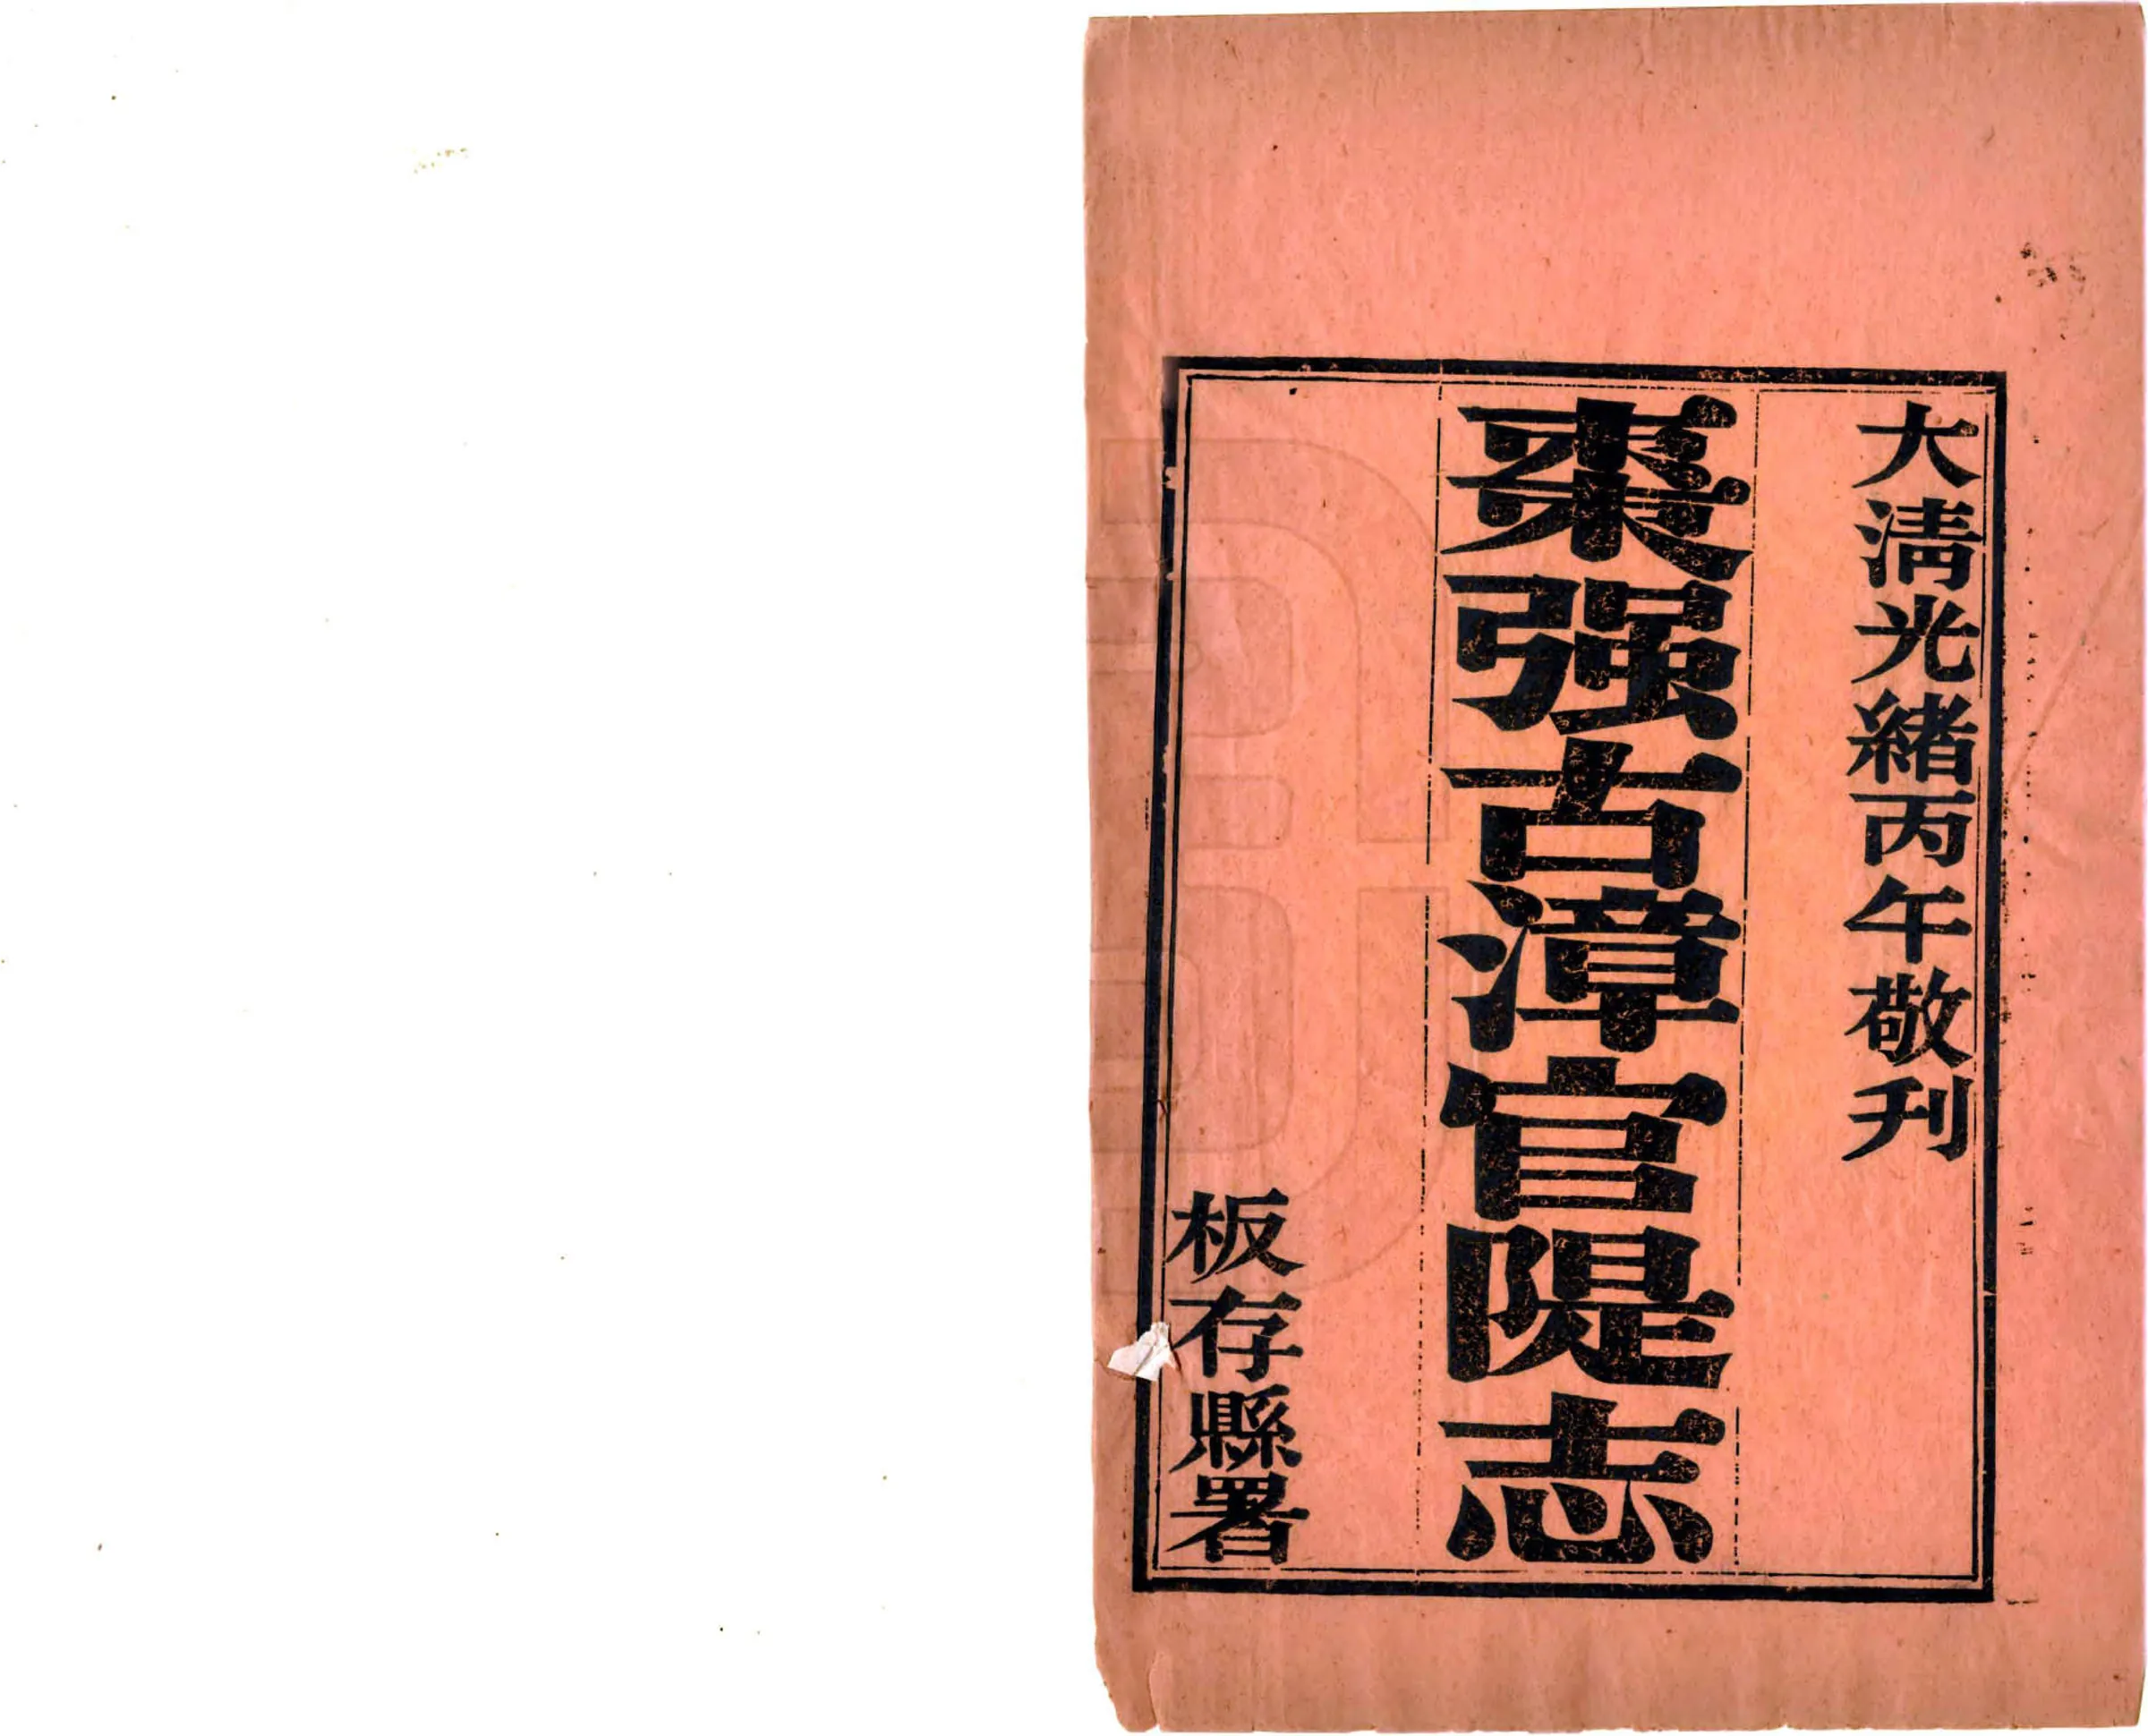 大清光緒丙午敬刊
棗强古漳官隄志
板存縣署